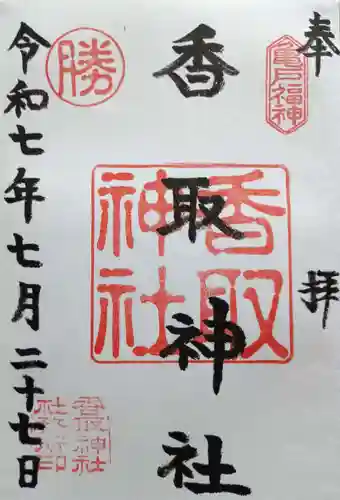 奉拝
亀戸福神
香取神社
香取神社
勝
令和七年七月二十七日
香取神社